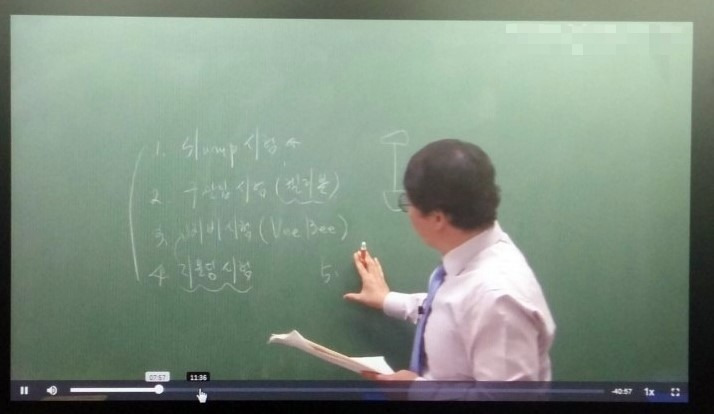 1. Slump 시험
2. 구관입 시험 (켈리볼)
3. 비비시험 (Vee Bee)
4. 리몰딩 시험 5.
07:57 11:36
-40:57 1x